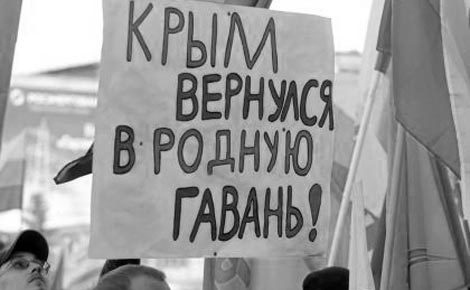 КРЫМ
ВЕРНУЛСЯ
В РОДНУЮ
ГАВАНЬ!